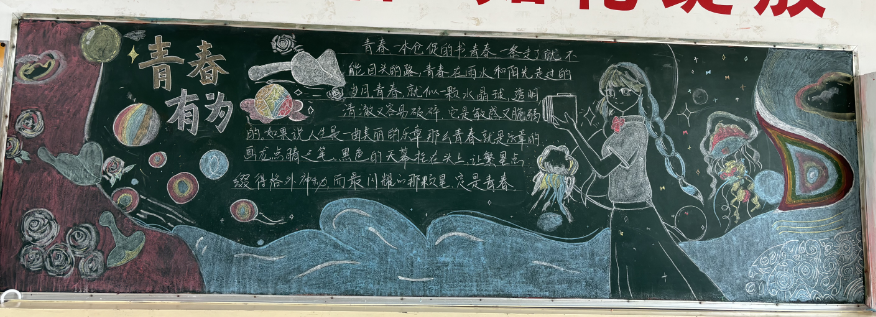 青春
有为
青春一本仓促的书青春一条走了就不
能回头的路,青春在雨水和阳光走过的
岁月青春就似一颗水晶球,透明
清澈又容易破碎,它是敏感又脆弱
的,如果说人生是一曲美丽的乐章那么青春就是乐章的
画龙点睛之笔,黑色的天幕挂在头上,让繁星点
缀得格外神动,而最闪耀的那颗星,定是青春
绽放